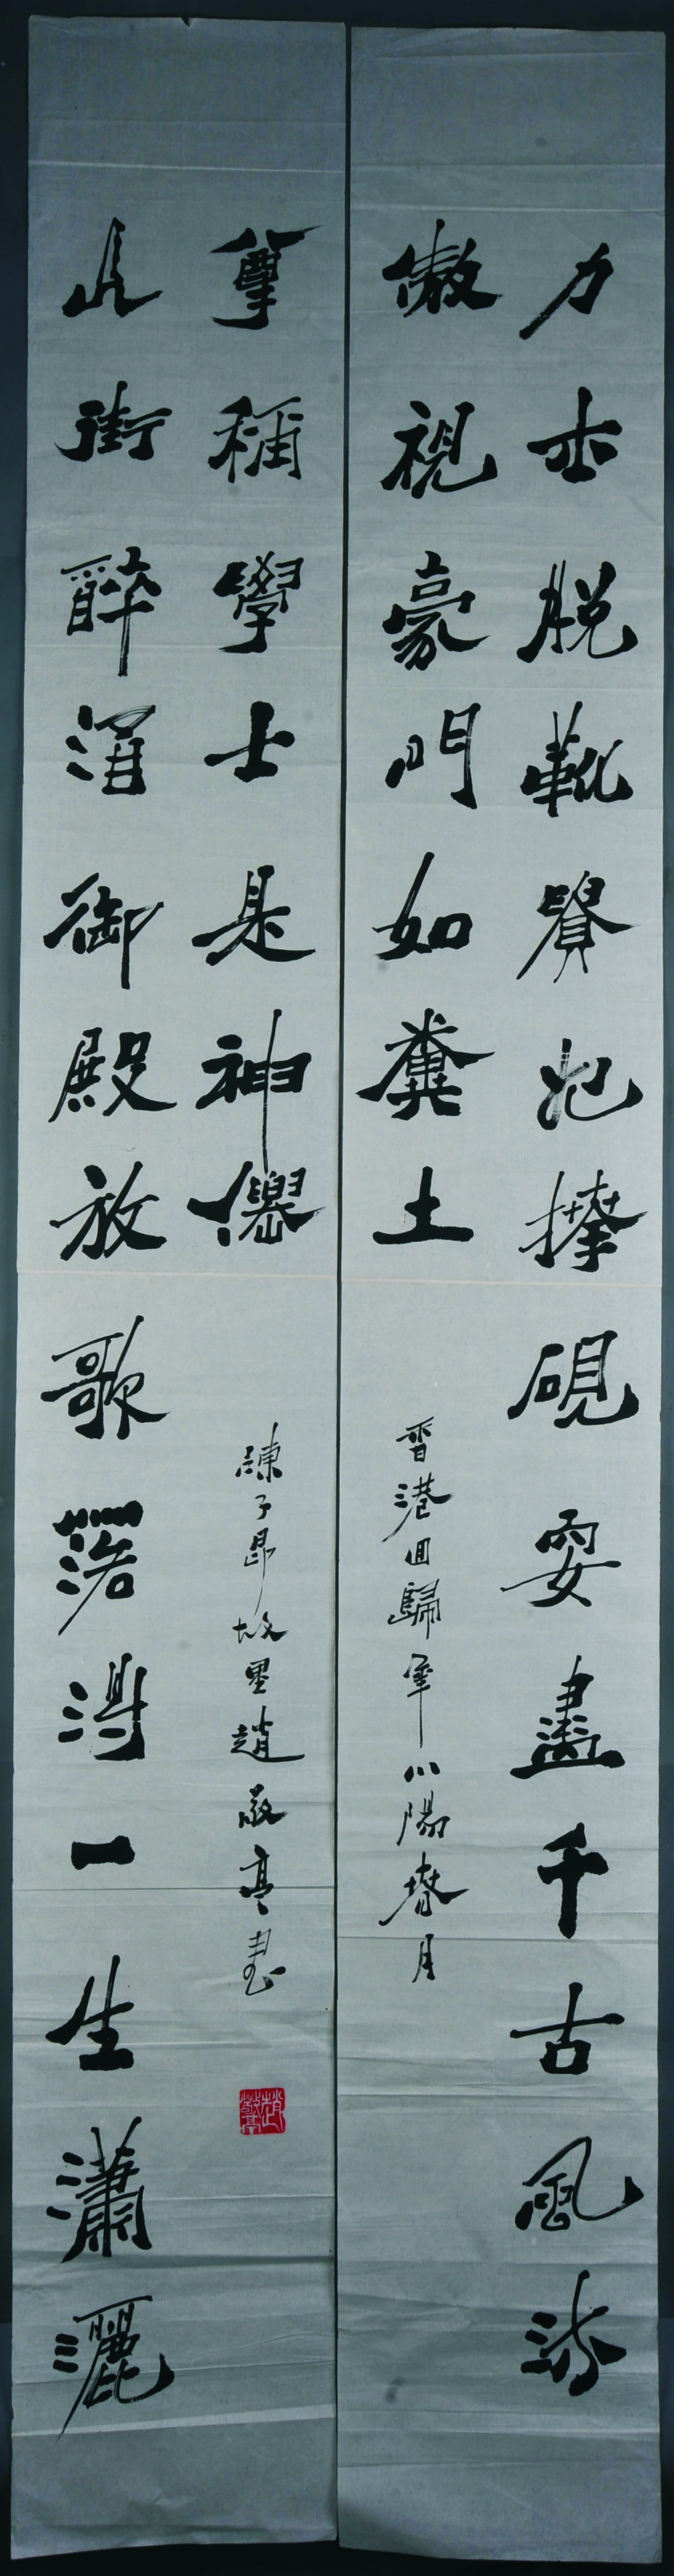 力士脫靴貴妃捧硯耍盡千古風流
傲視豪門如糞土
香港回歸年小陽春月
長街醉酒御殿放歌落得一生瀟灑
尊稱學士是神僊
陳子昂故里趙敬亭書
趙敬亭